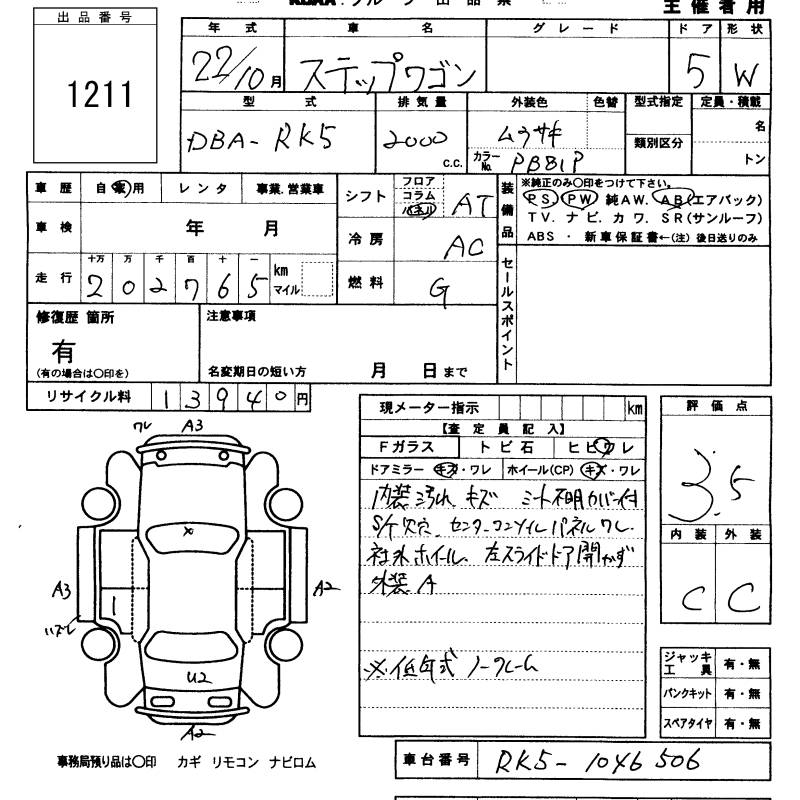 出品票
主催者用
出品番号
1211
年式 車名 グレード ドア 形状
22/10月 ステップワゴン 5 W
型式 排気量 外装色 色替 型式指定 定員・積載
DBA-RK5 2000 c.c. ムラサキ 類別区分 名
カラーNo. PB81P トン
車歴 自家用 レンタ 事業.営業車 シフト フロア コラム パネル AT
装備品 ※純正のみ○印をつけて下さい。
PS PW 純AW. AB(エアバック)
TV. ナビ. カワ. SR(サンルーフ)
ABS ・ 新車保証書←(注) 後日送りのみ
車検 年 月 冷房 AC
走行 十万 万 千 百 十 一
202765 km マイル 燃料 G
セールスポイント
修復歴 箇所 注意事項
有
(有の場合は○印を) 名変期日の短い方 月 日まで
リサイクル料 13940円
現メーター指示 km 評価点
【査定員記入】
Fガラス トビ石 ヒビワレ
ドアミラー キズ・ワレ ホイール(CP) キズ・ワレ
3.5
内装汚れ キズ シート不明カバー付
S/ケ欠穴 センターコンソイルパネルワレ
社外ホイール 左スライドドア開かず
外装A
内装 外装
C C
※低年式 ノークレーム
ワレ A3
A3 A2
ハズレ
U2
A2
ジャッキ工具 有・無
パンクキット 有・無
スペアタイヤ 有・無
事務局預り品は○印 カギ リモコン ナビロム
車台番号 RK5-1046506